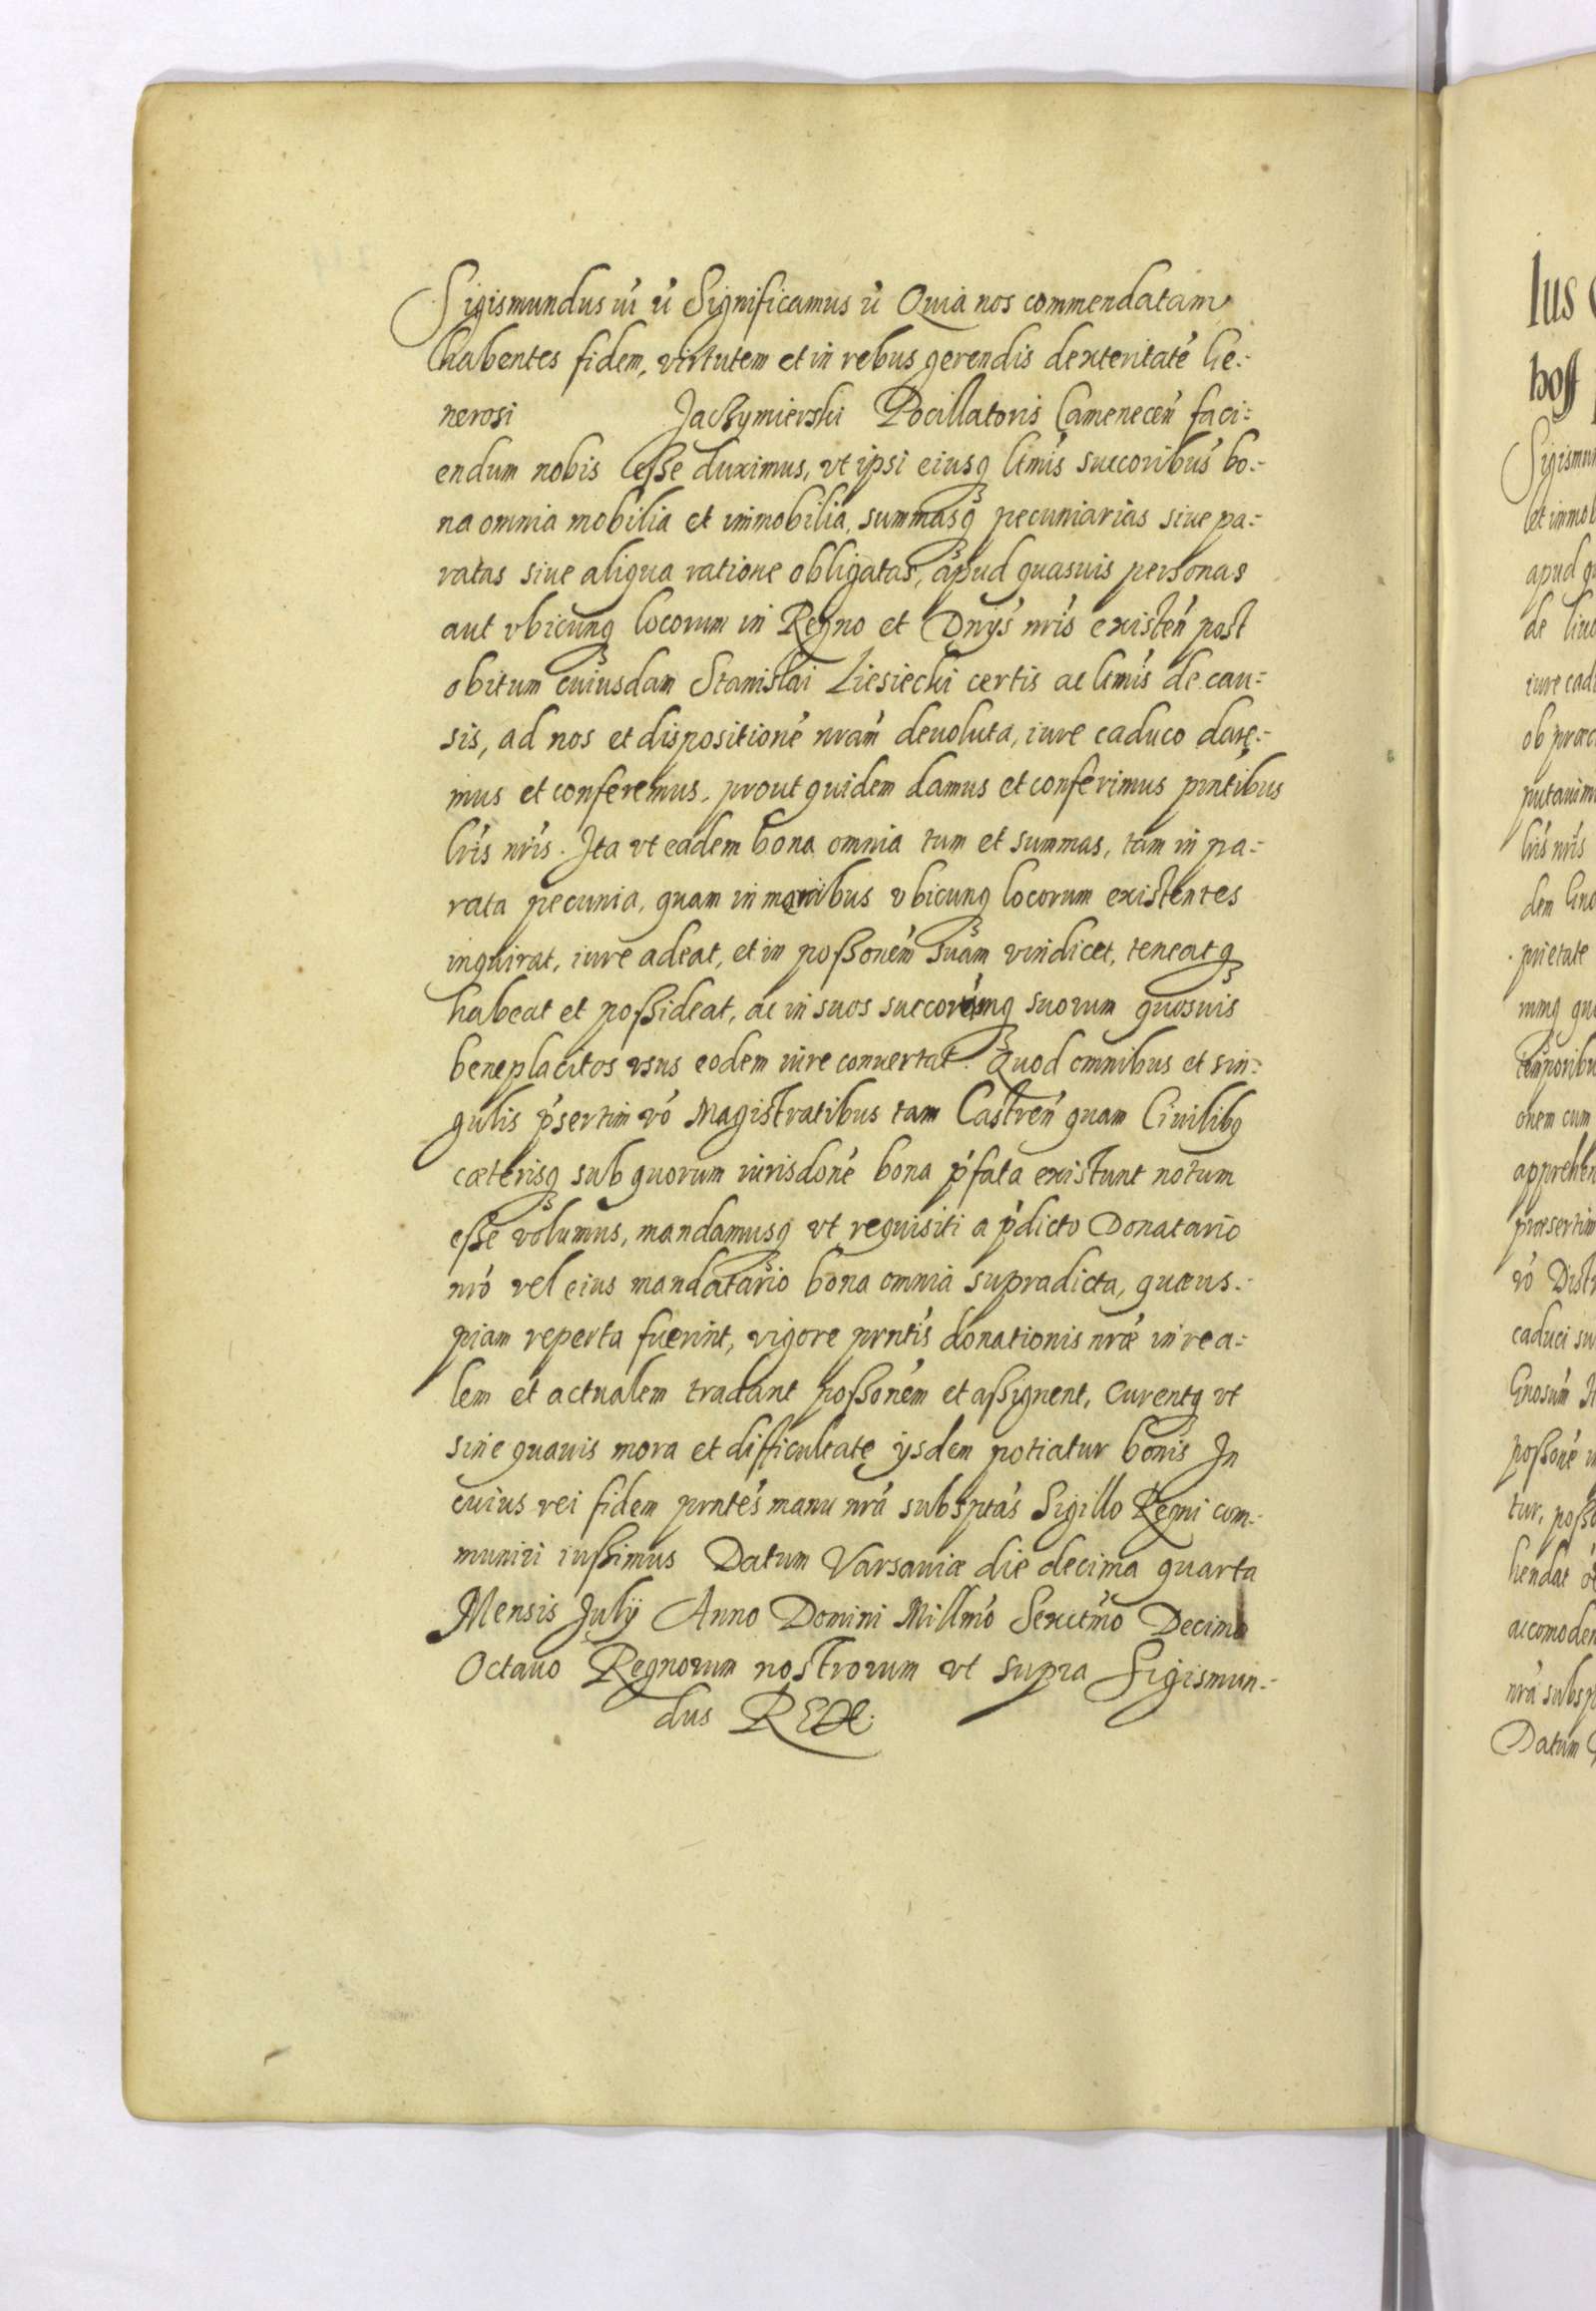 Sigismundus iii ŕc Significamus ŕc Quia nos commendatam
habentes fidem, virtutem et in rebus gerendis dexteritatē Ge-
nerosi Jachymierski Pocillatoris Camenecen̄ faci-
endum nobis esse duximus, vt ipsi eiusq3 ltmīs succoribus̄ bo-
na omnia mobilia et immobilia, summasq3 pecuniarias siue pa-
ratas siue aliqua ratione obligatas, apud quasuis personas
aut vbicunq3 locorum in Regno et Dnijs̄ nrīs existen̄ post
obitum cuiusdam Stanislai Liesiecki certis ac ltmīs de cau-
sis, ad nos et dispositionē nram̄ deuoluta, iure caduco dare-
mus et conferemus, prout quidem damus et conferimus pntībus
lrīs nrīs. Ita vt eadem bona omnia tum et summas, tam in pa-
rata pecunia, quam in membr ibus vbicunq3 locorum existentes
inquirat, iure adeat, et in possonēm suam vindicet, teneatq3
habeat et possideat, ac in suos succorūmq3 suorum quosuis
beneplacitos vsus eodem iure conuertat. Quod omnibus et sin-
gulis p̄sertim vō Magistratibus tam Castren̄ quam Ciuilibq
cæterisq3 sub quorum iurisdonē bona p̄fata existunt notum
esse volumus, mandamusq3 vt requisiti a p̄dicto Donatario
nrō vel eius mandatario bona omnia supradicta, quæus-
piam reperta fuerint, vigore prntīs donationis nrǣ in rea-
lem et actualem tradant possonēm et assignent, curentq3 vt
sine quauis mora et difficultate ijsdem potiatur bonis In
cuius rei fidem prntēs manu nrā subsptās Sigillo Regni com-
muniri iussimus Datum Varsauiæ die decima quarta
Mensis Julij Anno Domini Millmō Sexctmō Decimo
Octauo Regnorum nostrorum vt supra Sigismun-
dus REX.